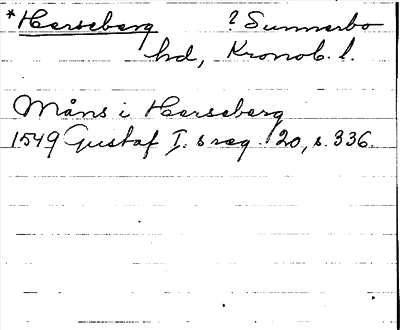 *Harseberg ? Sunnerbo
hd, Kronob. l.
Måns i Harseberg
1549 Gustaf I:s reg. 20, s. 336.